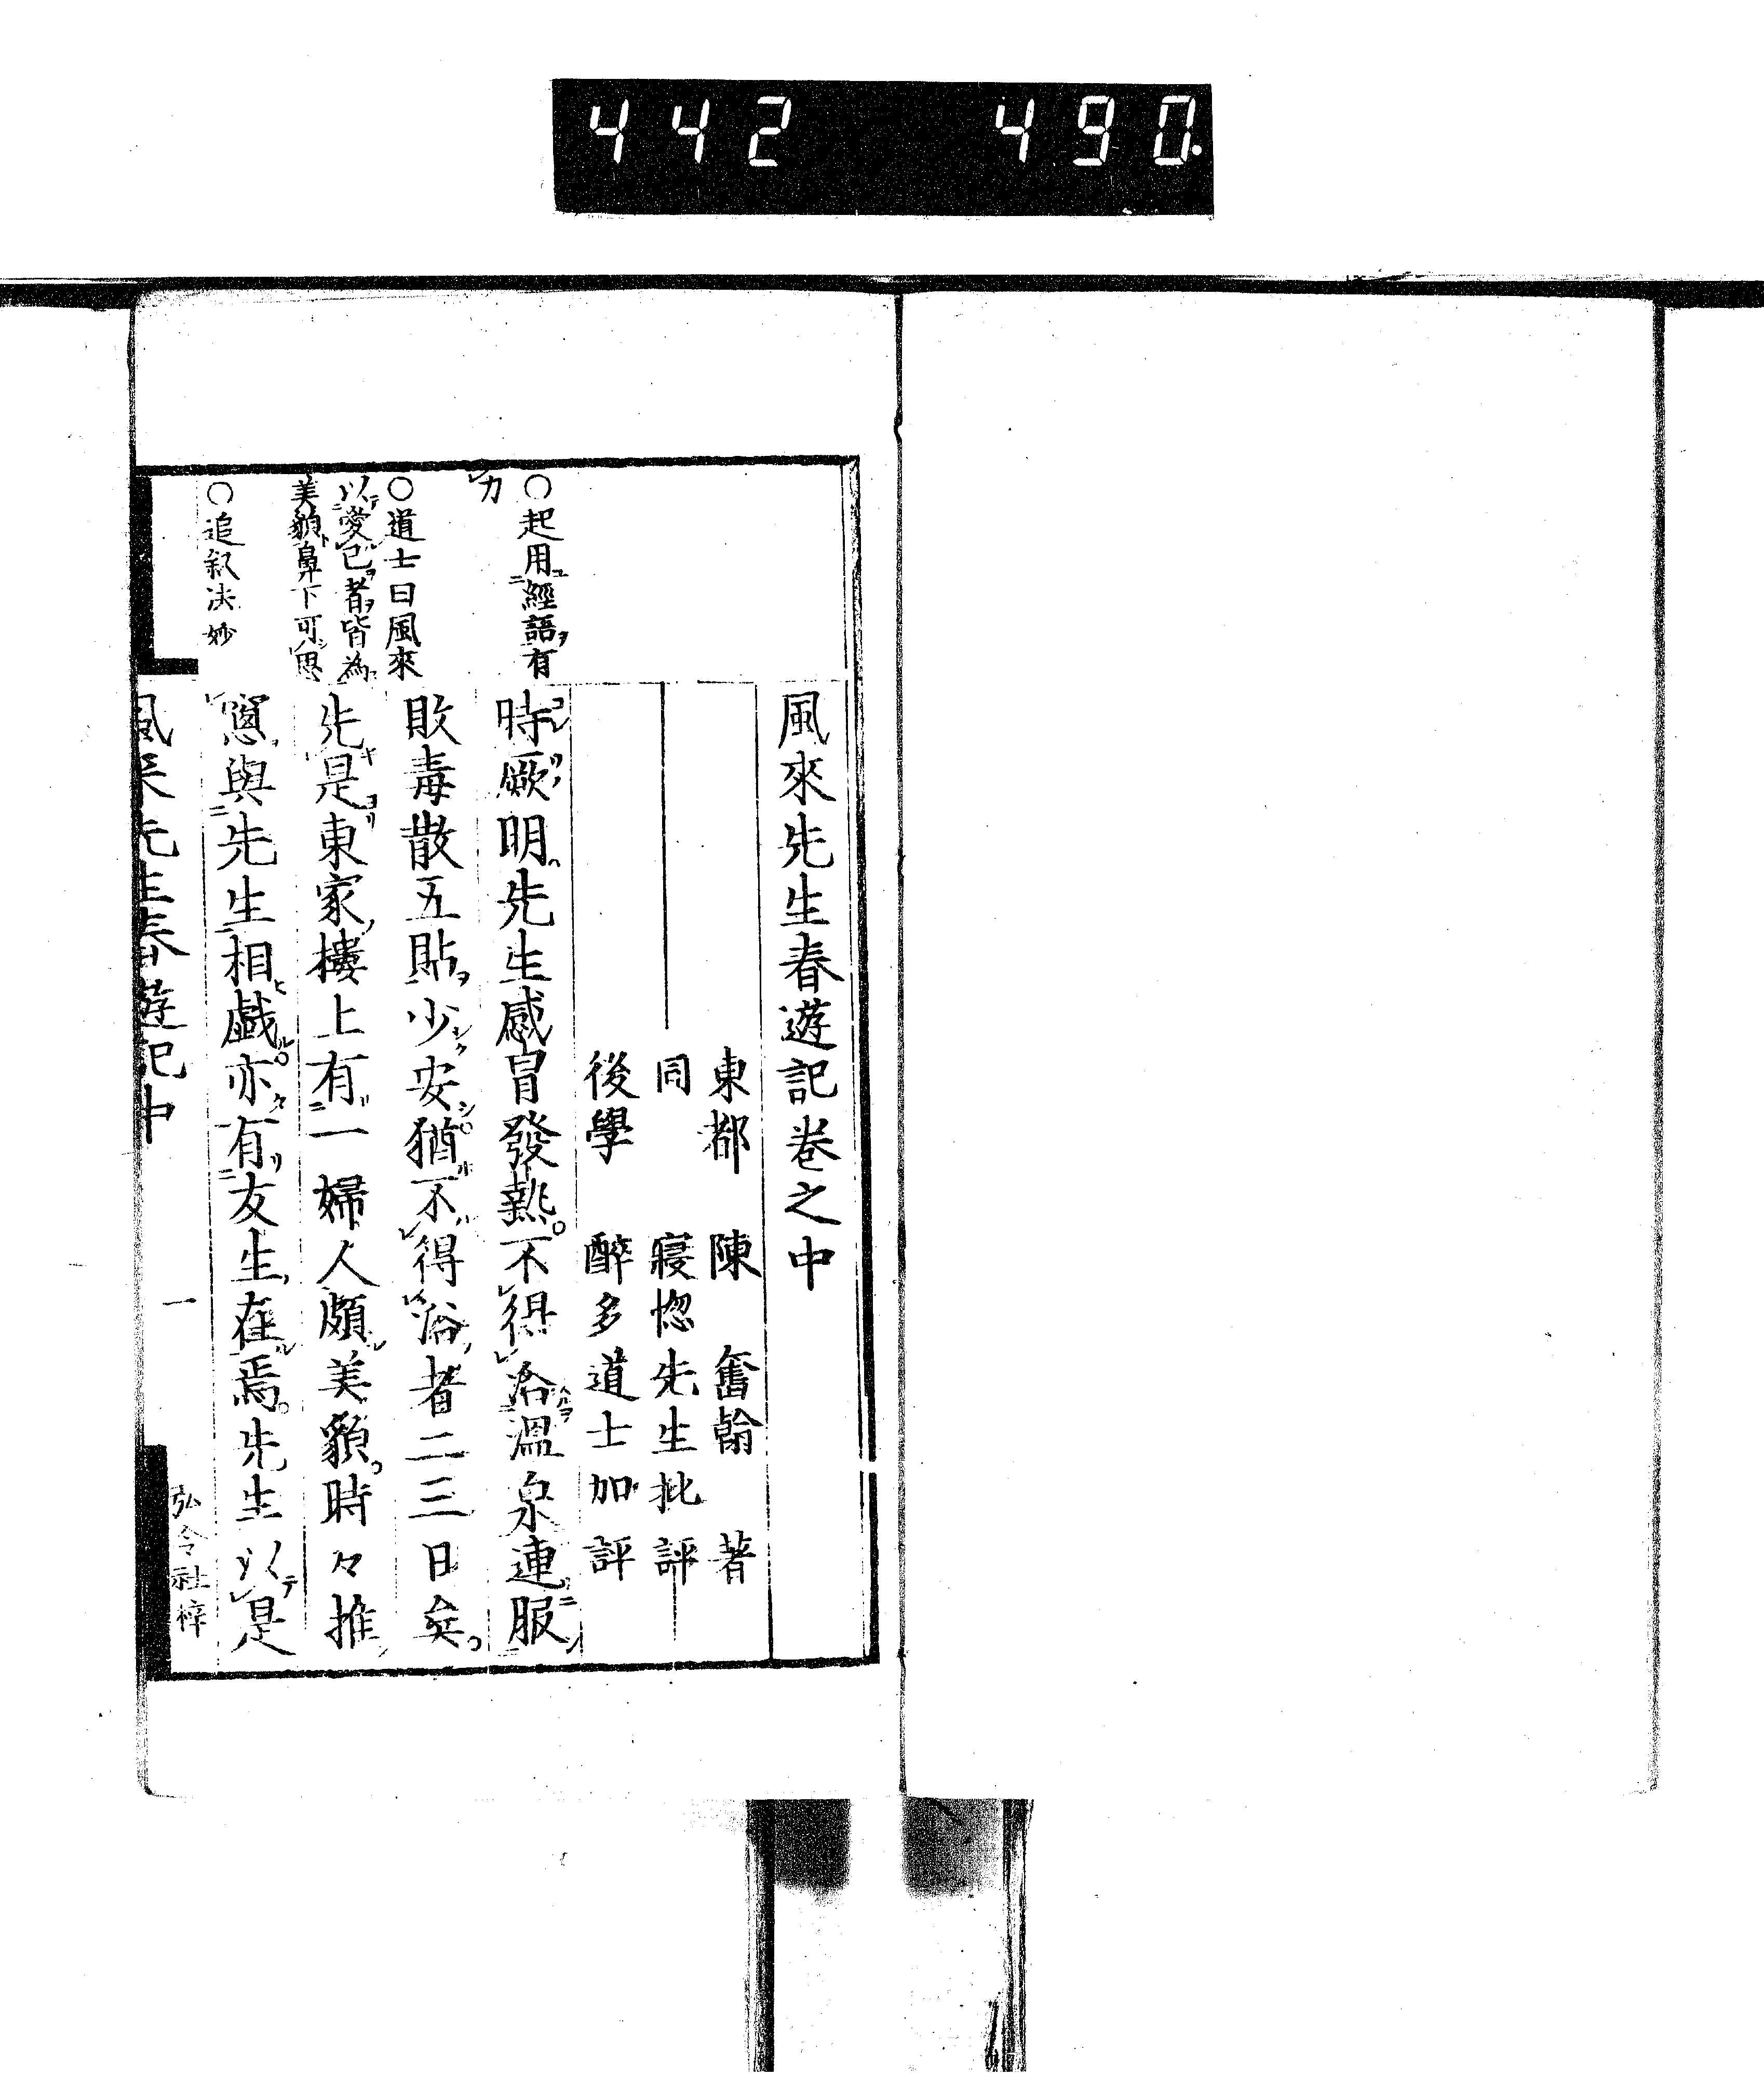 442 490.
風來先生春遊記巻之中
東都 陳 奮翰 著
同 寝惚先生批評
後學 醉多道士加評
時厥明先生感冒發熱。不得浴溫泉連服
敗毒散五貼少安猶不得浴者二三日矣。
先是東家樓上有一婦人頗美貌。時々推
窓與先生相戯。亦有友生在焉。先生以是
○起用經語有
力
○道士曰風來
以愛己者皆為
美貌鼻下可思
○追叙决妙
風来先生春遊記中 一 弘令社梓